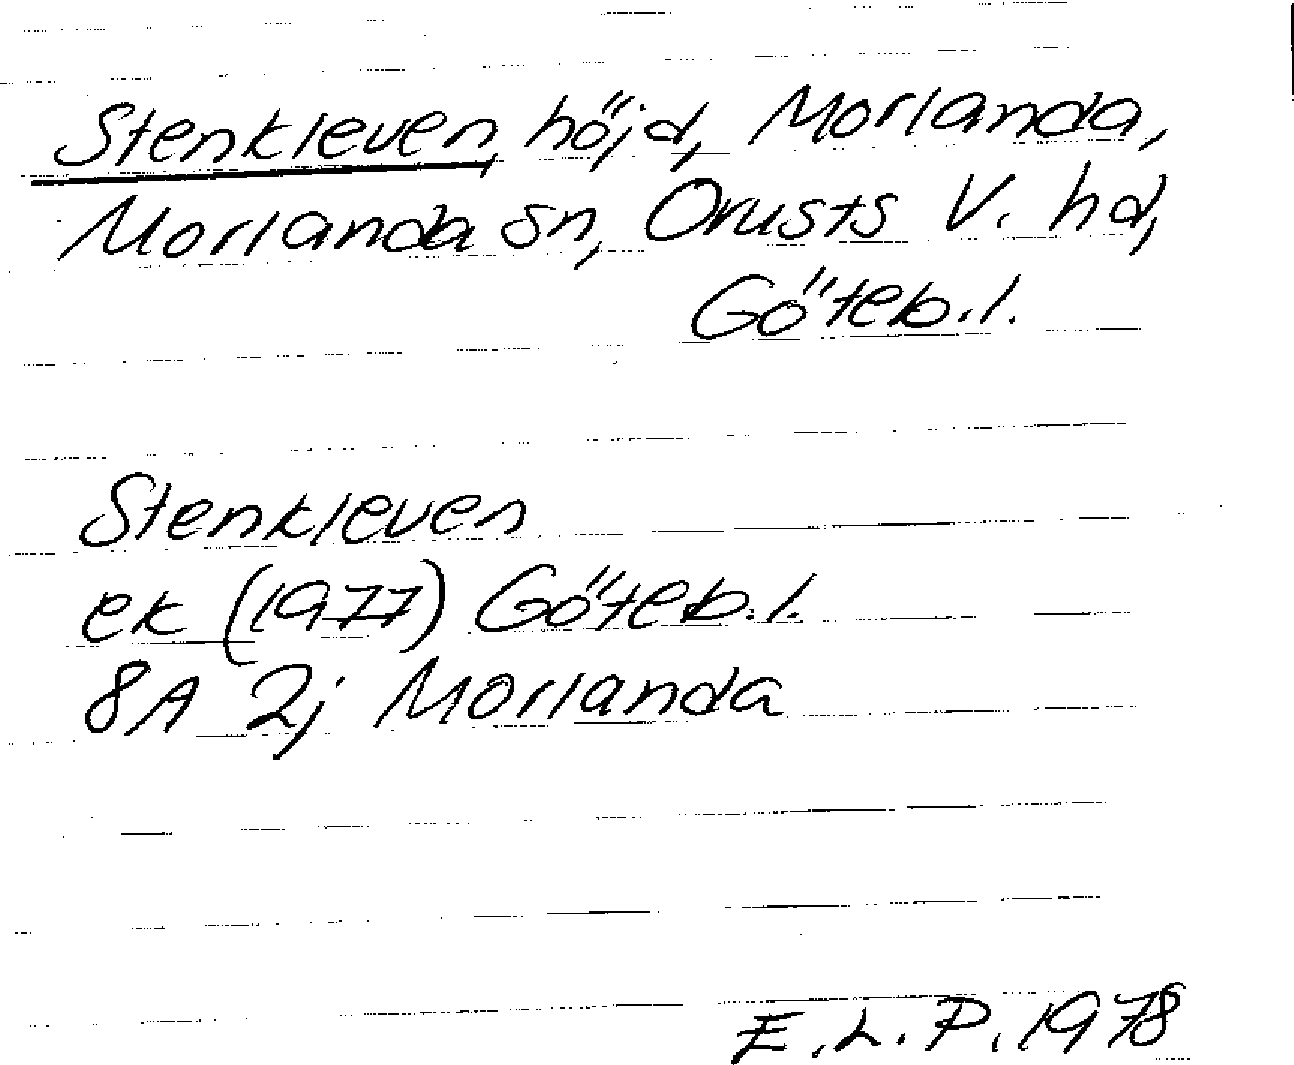 Stenkleven, höjd, Morlanda,
Morlanda sn, Orusts V. hd,
Göteb.l.
Stenkleven
ek (1977) Göteb.l.
8A 2j Morlanda
E.L.P. 1978